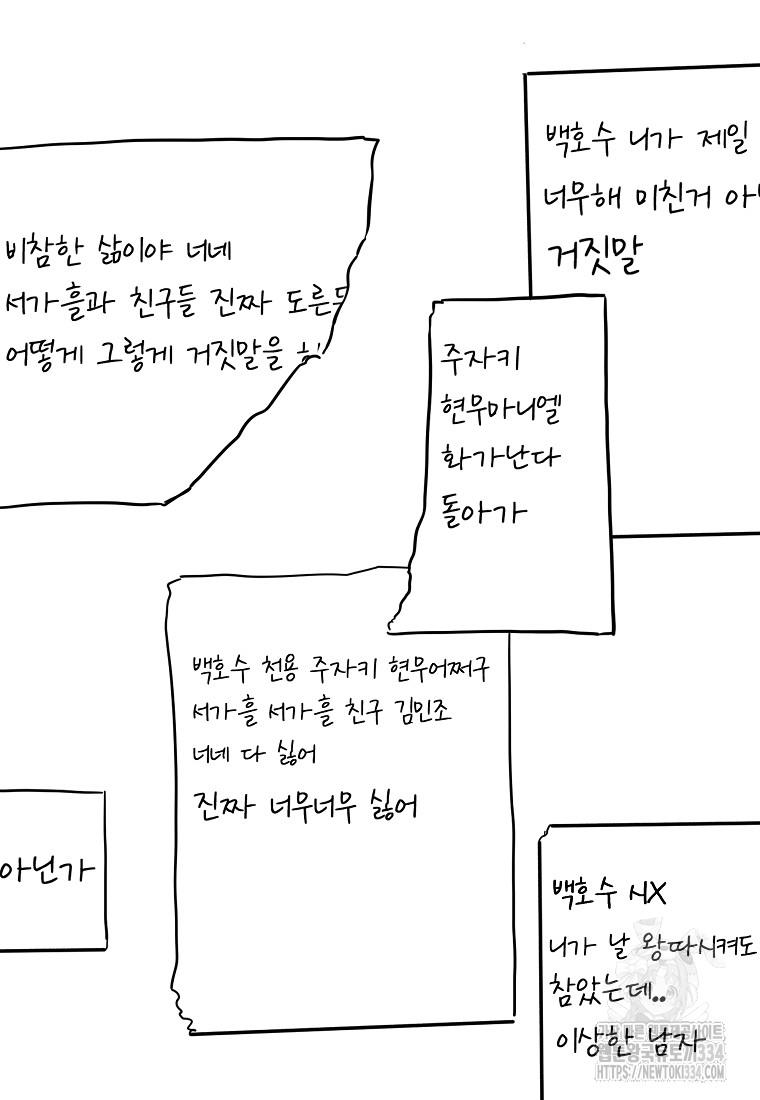 백호수 니가 제일
너무해 미친거 아
거짓말
비참한 삶이야 너네
서가흘과 친구들 진짜 도른
어떻게 그렇게 거짓말을
주자키
현무마니엘
화가난다
돌아가
백호수 천용 주자키 현무어쩌구
서가흘 서가흘 친구 김민조
너네 다 싫어
진짜 너무너무 싫어
아닌가
백호수 시X
니가 날 왕따시켜도
참았는데..
이상한 남자
HTTPS://NEWTOKI334.COM